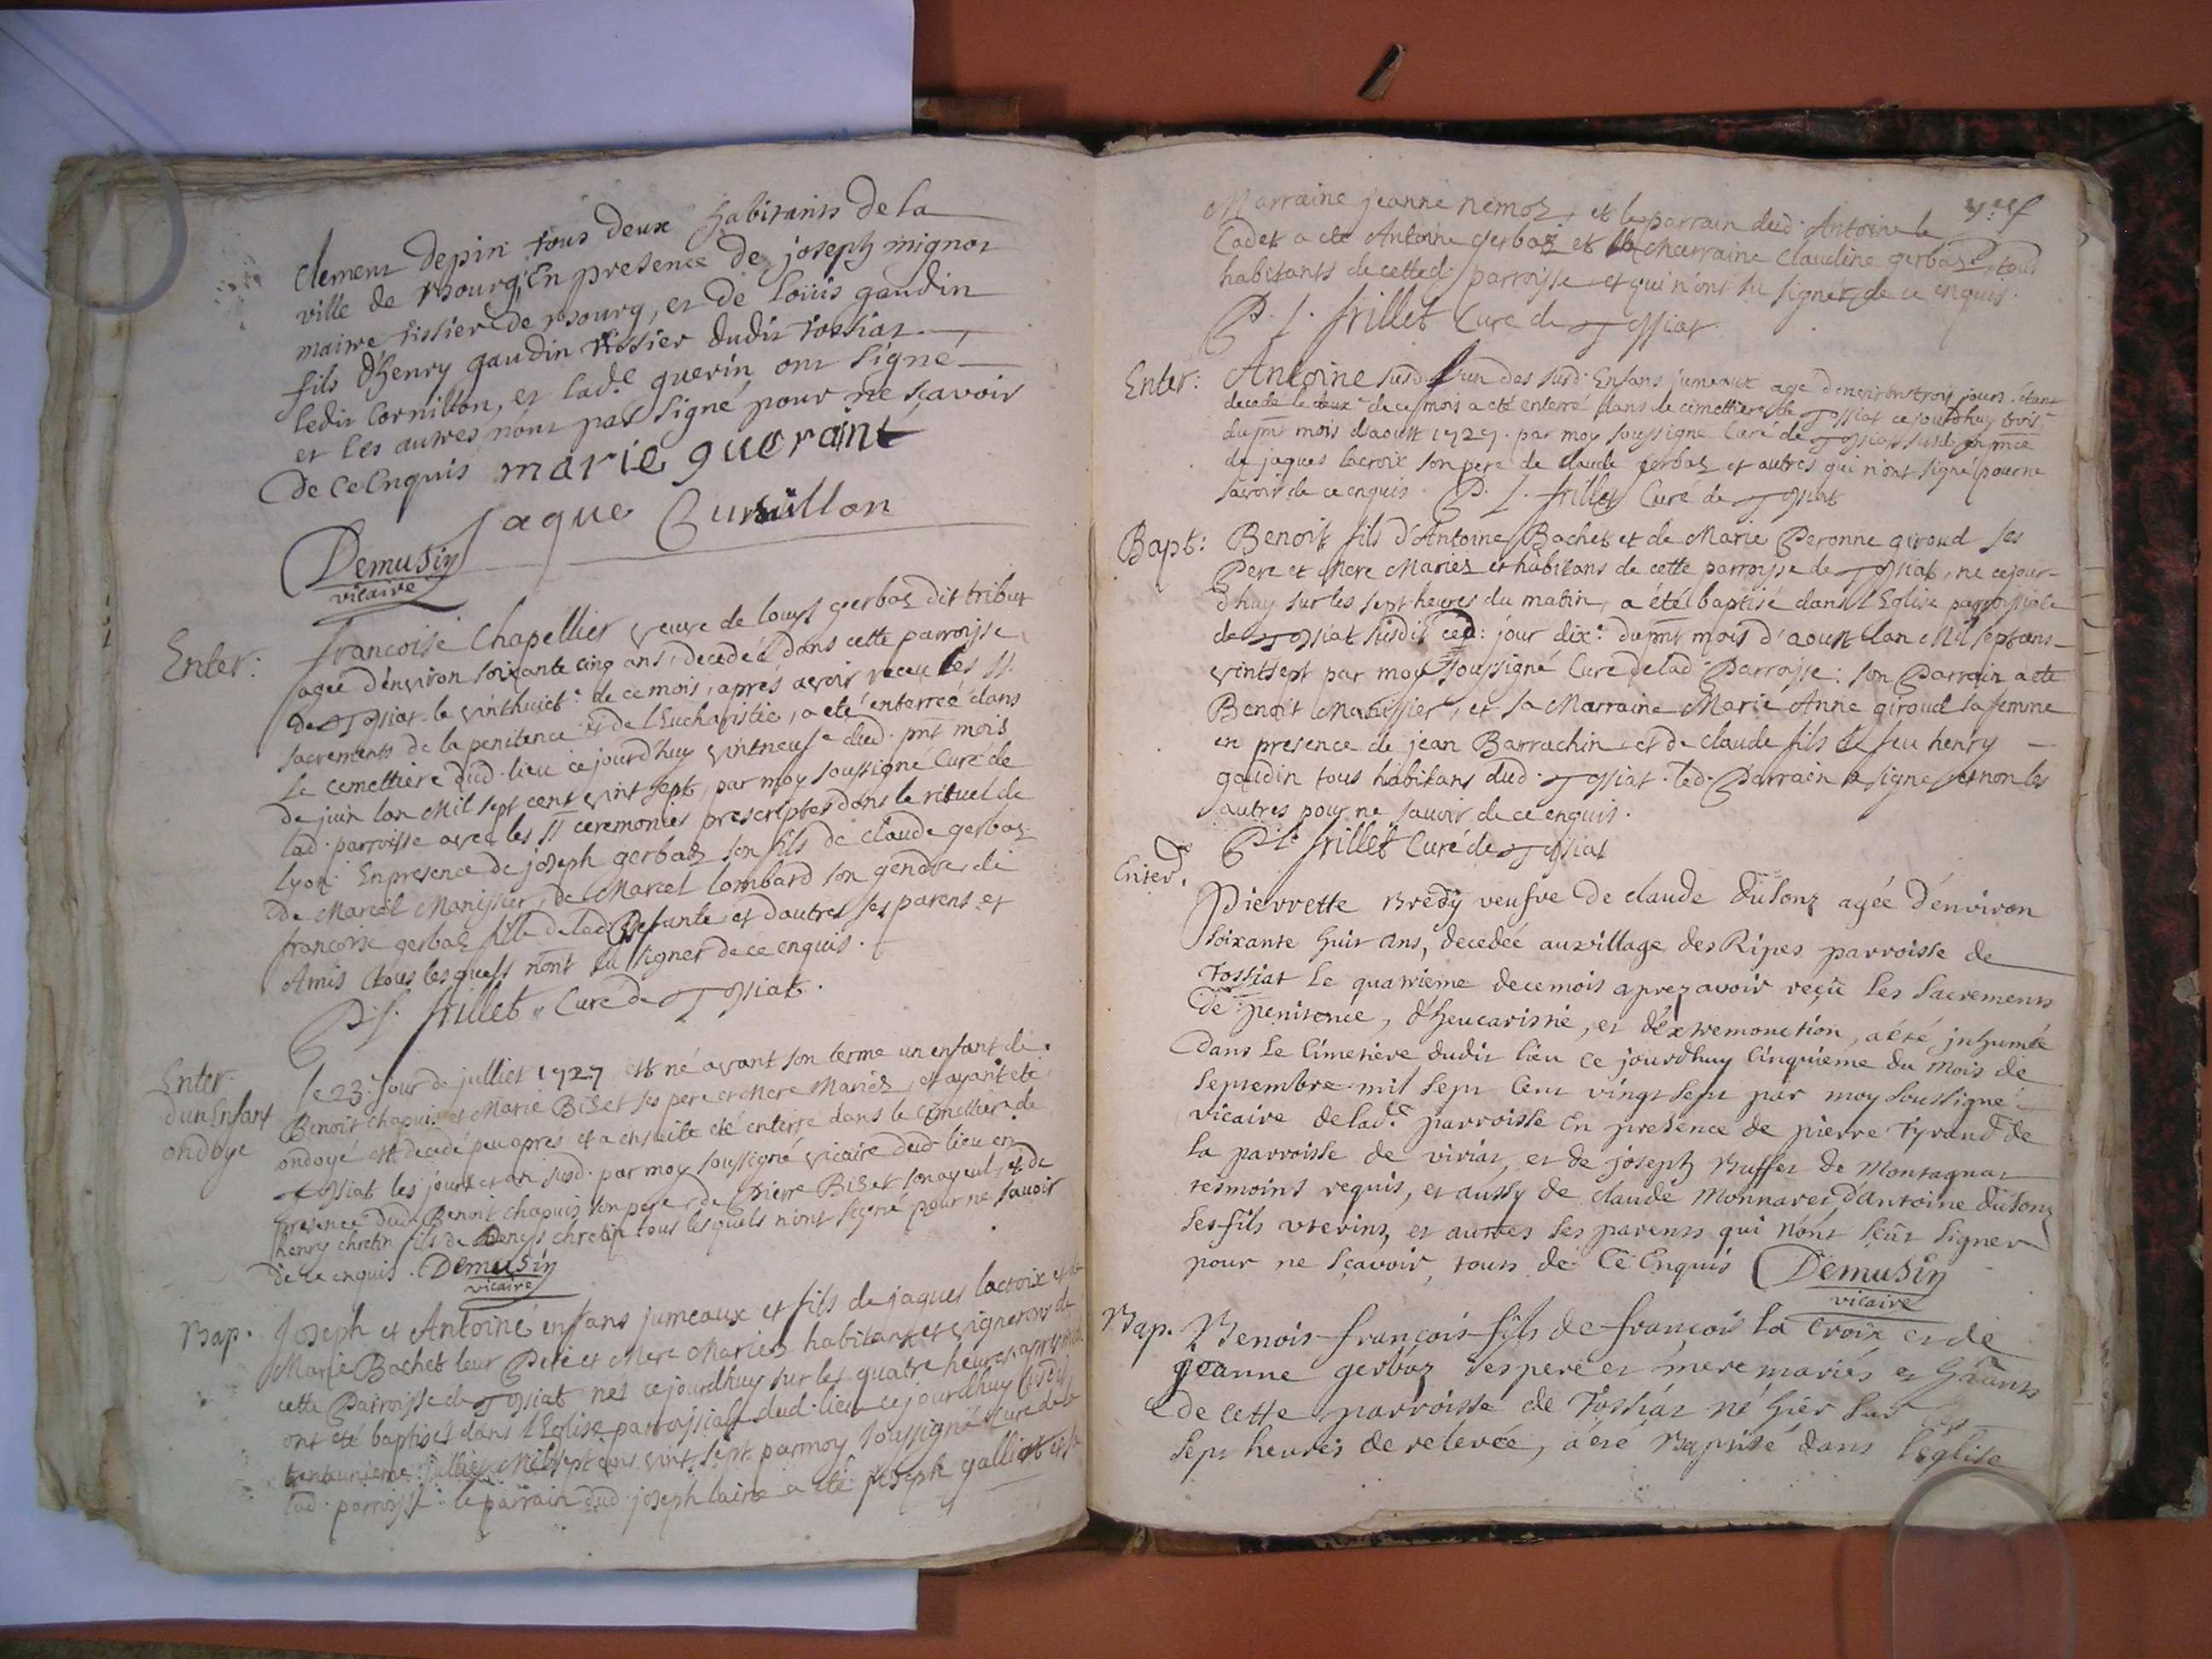 Clement depin tous deux habitants de la
ville de Bourg, En presence de joseph mignot
maitre tissier de Bourg, et de Loüis gaudin
fils d'henry gaudin tissier dudit tossiat
ledit Cornillon, et lad.e guerin ont signé
et les autres nont pas signé pour ne sçavoir
De ce Enquis marie gueraint
jaque Curnillon
Demusin
vicaire
Enter: francoise Chapellier veuve de louys gerbaz dit tribut
agée d'environ soixante cinq ans, decedée dans cette parroisse
de Tossiat le vinthuict.e de ce mois, aprés avoir receu les SS.
sacrements de la penitence et de l'Eucharistie, a eté enterrée dans
le cemettiere dud. lieu ce jourdhuy vintneufe dud. pnt mois
de juin lan Mil sept cent vint sept, par moy soussigné Curé de
lad. parroisse avec les SS ceremonies prescriptes dans le rituel de
Lyon. En presence de joseph gerbaz son fils de claude gerbaz
de Marcel Manissier, de Marcel lombard son gendre, de
francoise gerbaz fille de lad. Defunte et d'autres ses parens et
Amis tous lesquels n'ont su signer de ce enquis.
P. J. frillet Curé de Tossiat.
Enter.
d'un Enfant
ondoye
le 23.e jour de julliet 1727 est né avant son terme un enfant de
Benoit chapuis et Marie Biset ses pere et Mere Mariez, et ayant eté
ondoyé est decedé peu aprés et a ensuite eté enterré dans le cimettiere de
Tossiat les jour et an susd. par moy soussigné vicaire dud. lieu en
presence dud. Benoit chapuis son pere, de Pierre Biset son ayeul, et de
henry chretin fils de Denys chretin tous lesquels n'ont signé pour ne savoir
de ce enquis. Demusin
vicaire
Bap. Joseph et Antoine enfans jumeaux et fils de jaques lacroix et de
Marie Bachet leur Pere et Mere Mariez habitans et vignerons de
cette Parroisse de Tossiat nés ce jourdhuy sur les quatre heures apres midi
ont eté baptisés dans l'Eglise parroissiale dud. lieu ce jourdhuy susdit
trenteunieme julliet Mil sept cens vint sept par moy soussigné Curé de
lad. parroisse. le parrain dud. joseph lainé a eté joseph galliot et sa
Marraine jeanne nemoz, et le parrain dud. Antoine le
Cadet a eté Antoine gerbaz et la Marraine claudine gerbaz, tous
habitants de cetted. parroisse et qui n'ont su signer de ce enquis.
P. J. frillet Curé de Tossiat
Enter: Antoine susd. l'un des susd. Enfans jumeaux agé d'environ trois jours étant
decedé le deux.e de ce mois a eté enterré dans le cimettiere de Tossiat ce jourdhuy trois.e
du pnt mois d'aoust 1727. par moy soussigné Curé de Tossiat susd. en pnce
de jaques lacroix son pere de claude gerbaz et autres qui n'ont signé pour ne
savoir de ce enquis. P. J. frillet Curé de Tossiat
Bapt: Benoit fils d'Antoine Bachet et de Marie Peronne giroud ses
Pere et Mere Mariez et habitans de cette parroisse de Tossiat, ne cejour-
dhuy sur les sept heures du matin, a été baptisé dans l'Eglise parroissiale
de Tossiat susdit ced: jour dix.e du pnt mois d'aoust lan Mil sept cens
vintsept par moy soussigné Curé de lad. Parroisse: son Parrain a eté
Benoit Manissier, et sa Marraine Marie Anne giroud sa femme
en presence de jean Barrachin et de claude fils de feu henry
gaudin tous habitans dud. Tossiat. led. Parrain a signé et non les
autres pour ne savoir de ce enquis.
P. J. frillet Curé de Tossiat
Enter. Pierrette Bredy veufve de claude dufour agée d'environ
soixante huit ans, decedée au village des Ripes parroisse de
Tossiat le quatrieme de ce mois aprez avoir reçü les sacrements
de penitence, d'heucaristie, et d'extremonction, a eté inhumée
dans le Cimetiere dudit lieu ce jourdhuy Cinquieme du mois de
septembre mil sept Cent vingt sept par moy soussigné
vicaire de lad.e parroisse En presence de pierre Tyraud de
la parroisse de viriat, et de joseph Buffet de Montagnat
tesmoins requis, et aussy de claude Monnaret, d'antoine dufour
ses fils uterins, et autres ses parents qui n'ont sçeut signer
pour ne sçavoir, tous de Ce Enquis Demusin
vicaire
Bap. Benoit-francois fils de francois la Croix et de
jeanne gerbaz ses pere et mere mariés et
de cette parroisse de Tossiat né hier sur les
sept heures de relevée, a eté Baptisé dans l'eglise